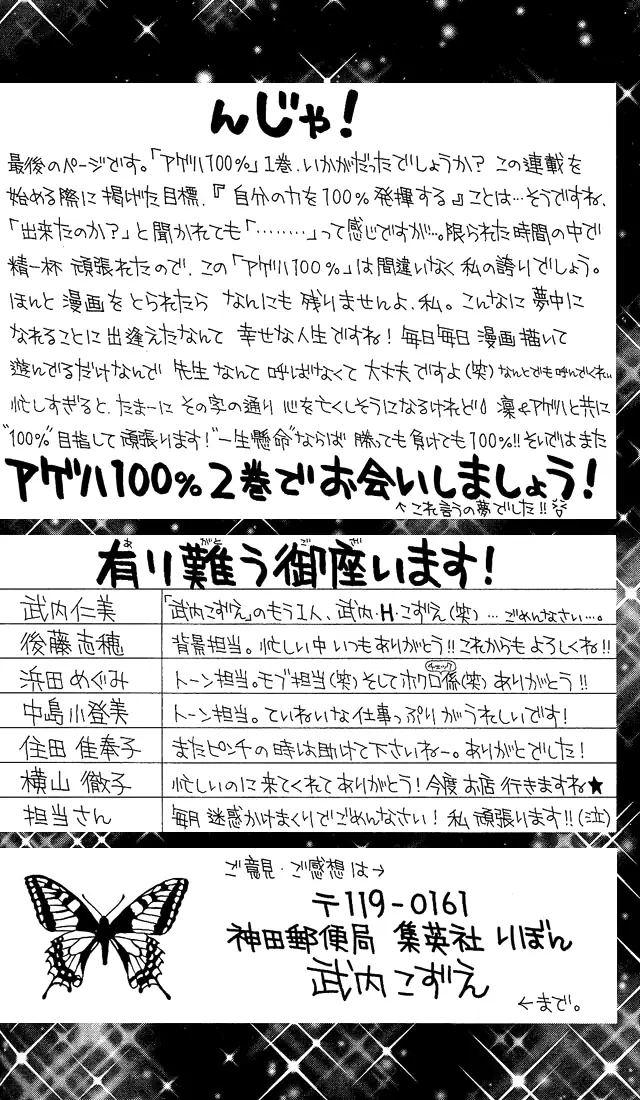 んじゃ!
最後のページです。「アゲハ100%」1巻、いかがだったでしょうか? この連載を
始める際に掲げた目標、『自分の力を100%発揮する』ことは…そうですね、
「出来たのか?」と聞かれても「………」って感じですが…。限られた時間の中で
精一杯 頑張れたので、この「アゲハ100%」は間違いなく私の誇りでしょう。
ほんと 漫画をとられたら なんにも 残りませんよ、私。こんなに 夢中に
なれることに出逢えたなんて 幸せな人生ですね! 毎日毎日 漫画描いて
遊んでるだけなんで 先生なんて 呼ばなくて 大丈夫ですよ(笑)なんとでも呼んでくれい
忙しすぎると、たまーに その字の通り 心を亡くしそうになるけれど 凛やアゲハと共に
"100%"目指して頑張ります!"一生懸命"ならば 勝っても負けても100%!! そいではまた
アゲハ100% 2巻でお会いしましょう!
↑これ言うの夢でした!!
有り難う御座います!
あ がと ご ざ
武内仁美 「武内こずえ」のもう1人、武内・H・こずえ(笑) …ごめんなさい…。
後藤志穂 背景担当。忙しい中いつもありがとう!! これからもよろしくね!!
浜田めぐみ トーン担当。モブ担当(笑)そしてホクロ係(笑) ありがとう!!
チェック
中島小登美 トーン担当。ていねいな仕事っぷりがうれしいです!
住田佳奉子 またピンチの時は助けて下さいねー。ありがとでした!
横山徹子 忙しいのに来てくれてありがとう!今度お店行きますね★
担当さん 毎月迷惑かけまくりでごめんなさい! 私頑張ります!!(泣)
ご意見・ご感想は→
〒119-0161
神田郵便局 集英社 りぼん
武内こずえ
←まで。